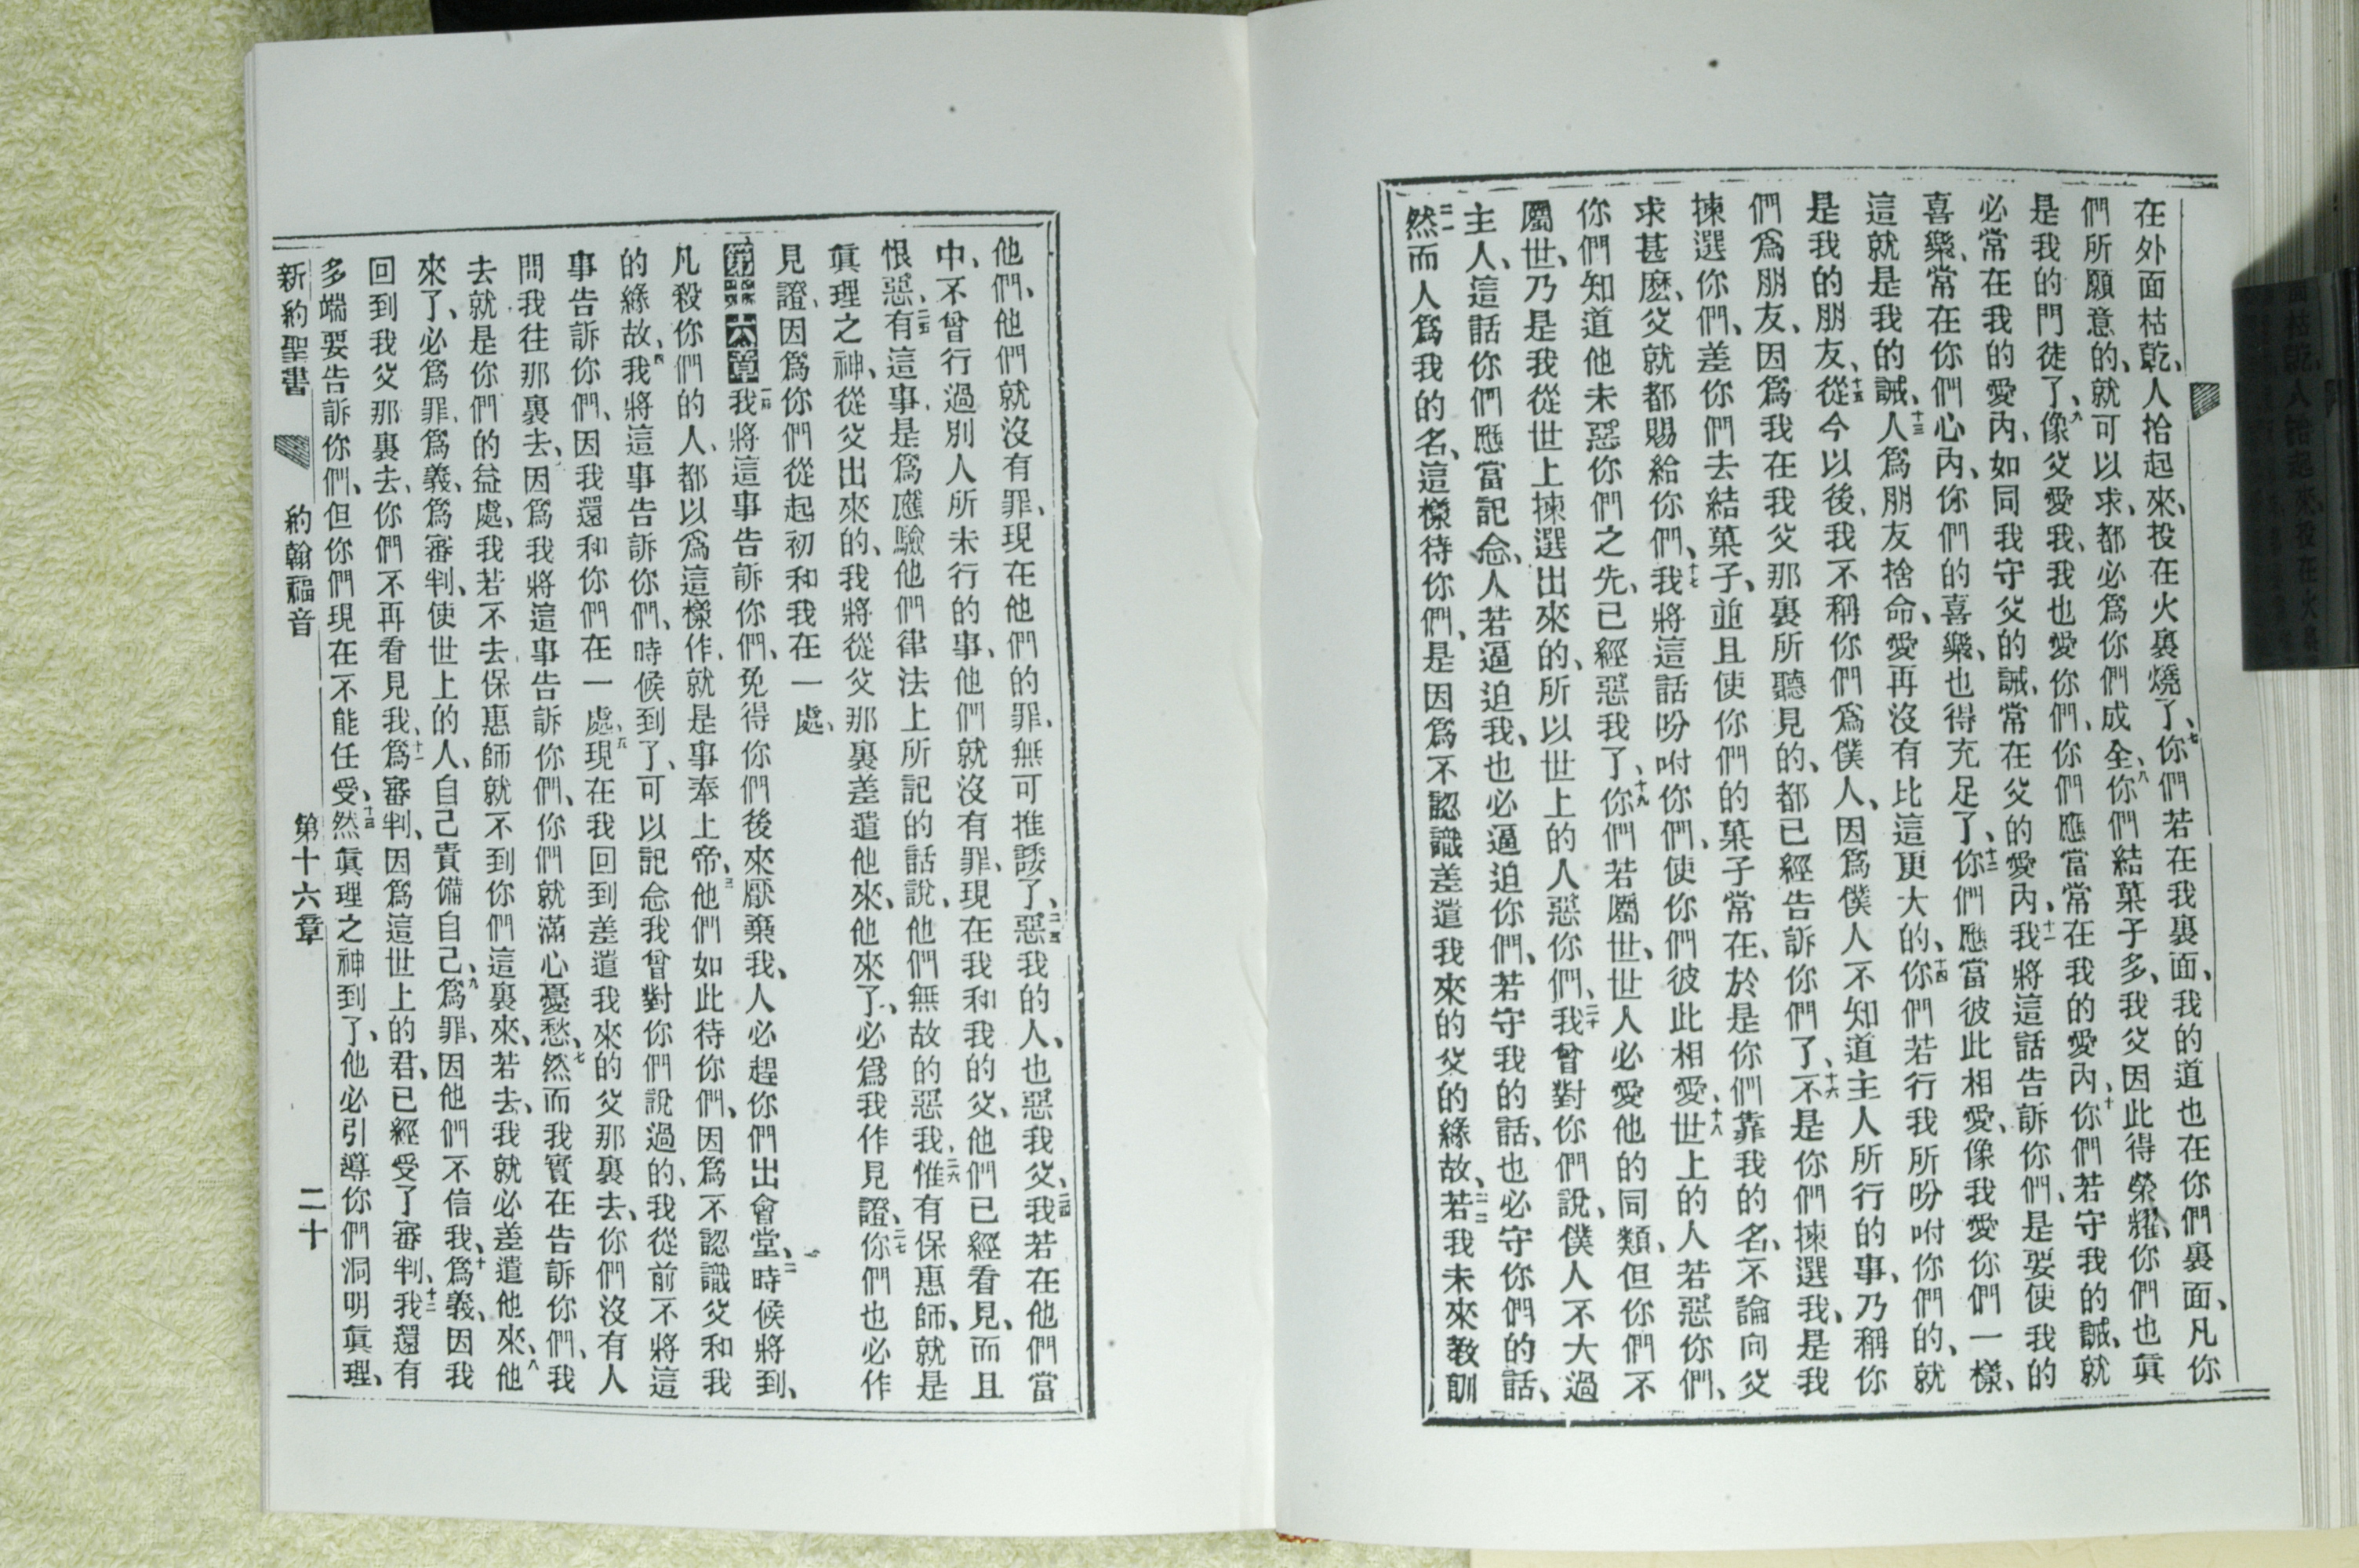 在外面枯乾、人拾起來、投在火裏燒了、七你們若在我裏面、我的道也在你們裏面、凡你
們所願意的、就可以求、都必爲你們成全、八你們結菓子多、我父因此得榮耀、你們也眞
是我的門徒了、九像父愛我、我也愛你們、你們應當常在我的愛內、十你們若守我的誡、就
必常在我的愛內、如同我守父的誡、常在父的愛內、十一我將這話告訴你們、是要使我的
喜樂、常在你們心內、你們的喜樂、也得充足了、十二你們應當彼此相愛、像我愛你們一樣、
這就是我的誡、十三人爲朋友捨命、愛再沒有比這更大的、十四你們若行我所吩咐你們的、就
是我的朋友、十五從今以後、我不稱你們爲僕人、因爲僕人不知道主人所行的事、乃稱你
們爲朋友、因爲我在我父那裏所聽見的、都已經告訴你們了、十六不是你們揀選我、是我
揀選你們、差你們去結菓子、並且使你們的菓子常在、於是你們靠我的名、不論向父
求甚麽、父就都賜給你們、十七我將這話吩咐你們、使你們彼此相愛、十八世上的人若惡你們、
你們知道他未惡你們之先、已經惡我了、十九你們若屬世、世人必愛他的同類、但你們不
屬世、乃是我從世上揀選出來的、所以世上的人惡你們、二十我曾對你們說、僕人不大過
主人、這話你們應當記念、人若逼迫我、也必逼迫你們、若守我的話、也必守你們的話、
二一然而人爲我的名、這樣待你們、是因爲不認識差遣我來的父的緣故、二二若我未來教訓
他們、他們就沒有罪、現在他們的罪、無可推諉了、二三惡我的人、也惡我父、二四我若在他們當
中、不曾行過別人所未行的事、他們就沒有罪、現在我和我的父、他們已經看見、而且
恨惡、二五有這事、是爲應驗他們律法上所記的話說、他們無故的惡我、二六惟有保惠師、就是
眞理之神、從父出來的、我將從父那裏差遣他來、他來了、必爲我作見證、二七你們也必作
見證、因爲你們從起初和我在一處、
第十六章一我將這事告訴你們、免得你們後來厭棄我、人必趕你們出會堂、二時候將到、
凡殺你們的人、都以爲這樣作、就是事奉上帝、三他們如此待你們、因爲不認識父和我
的緣故、四我將這事告訴你們、時候到了、可以記念我曾對你們說過的、我從前不將這
事告訴你們、因我還和你們在一處、五現在我回到差遣我來的父那裏去、你們沒有人
問我往那裏去、因爲我將這事告訴你們、你們就滿心憂愁、七然而我實在告訴你們、我
去就是你們的益處、我若不去、保惠師就不到你們這裏來、若去、我就必差遣他來、八他
來了、必爲罪、爲義、爲審判、使世上的人、自己責備自己、九爲罪、因他們不信我、十爲義、因我
回到我父那裏去、你們不再看見我、十一爲審判、因爲這世上的君、已經受了審判、十二我還有
多端要告訴你們、但你們現在不能任受、十三然眞理之神到了、他必引導你們洞明眞理、
新約聖書 約翰福音 第十六章 二十